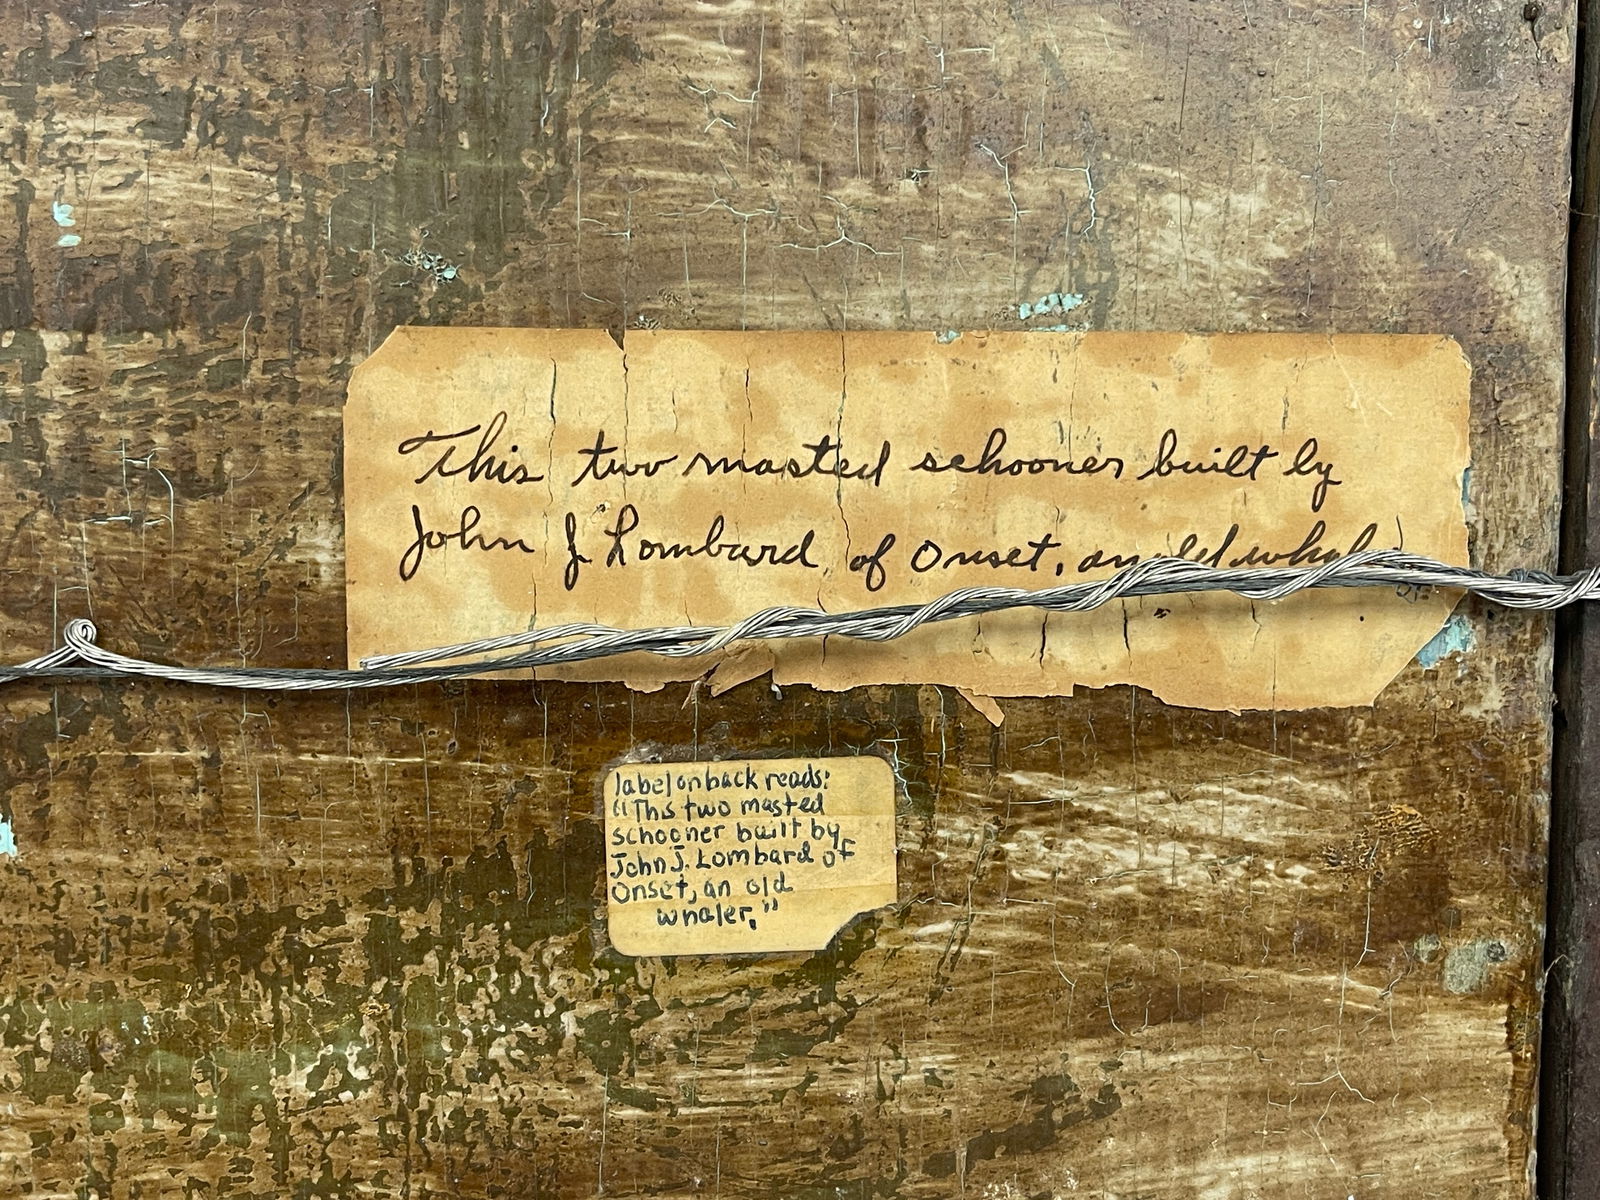 This two masted schooner built by
John J Lombard of Onset, an old
label on back reads:
"This two masted
schooner built by
John J. Lombard of
Onset, an old
whaler."